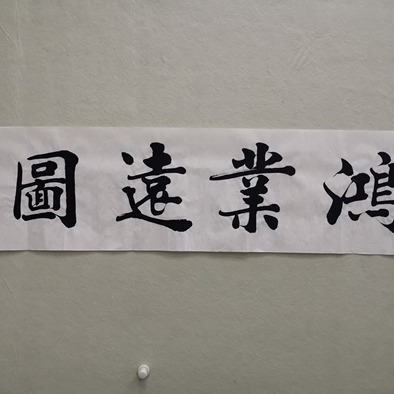 鴻業遠圖